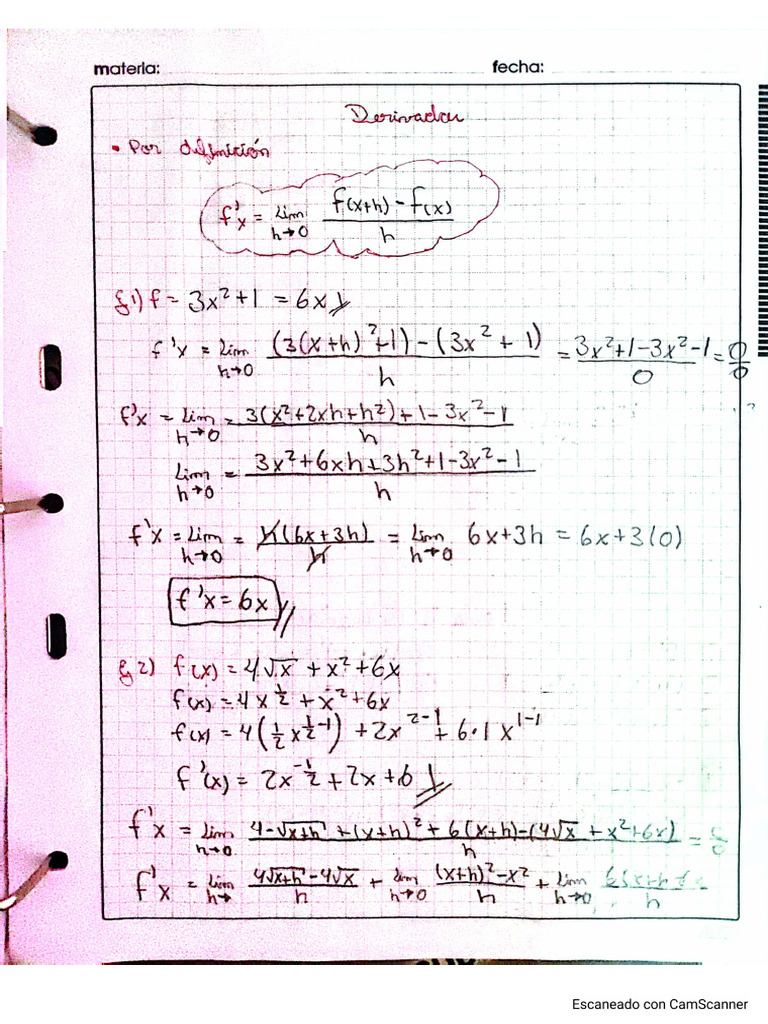 materia: fecha:
Derivadas
• Por definición
f'x = Lim h→0 f(x+h) - f(x) / h
Ej 1) f = 3x² + 1 = 6x
f'x = Lim h→0 (3(x+h)²+1) - (3x² + 1) / h = 3x²+1-3x²-1 / 0 = 0/0
f'x = Lim h→0 = 3(x²+2xh+h²)+1-3x²-1 / h
Lim h→0 = 3x²+6xh+3h²+1-3x²-1 / h
f'x = Lim h→0 = h(6x+3h) / h = Lim h→0 6x+3h = 6x+3(0)
f'x = 6x
Ej 2) f(x) = 4√x + x² + 6x
f(x) = 4x^½ + x² + 6x
f(x) = 4(½x^½-1) + 2x^2-1 + 6·1x^1-1
f'(x) = 2x^-½ + 2x + 6
f'x = Lim h→0 4-√x+h + (x+h)² + 6(x+h)-(4√x + x²+6x) / h =
f'x = Lim h→ 4√x+h - 4√x / h + Lim h→0 (x+h)² - x² / h + Lim h→0 / h
Escaneado con CamScanner